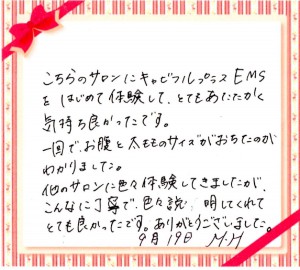 こちらのサロンにキャビフルプラスEMS
をはじめて体験して、とてもあたたかく
気持ち良かったです。
一回で、お腹と太もものサイズがおちたのが
わかりました。
他のサロンに色々体験してきましたが、
こんなに丁寧で、色々説明してくれて
とても良かったです。ありがとうございました。
9月19日 M.M